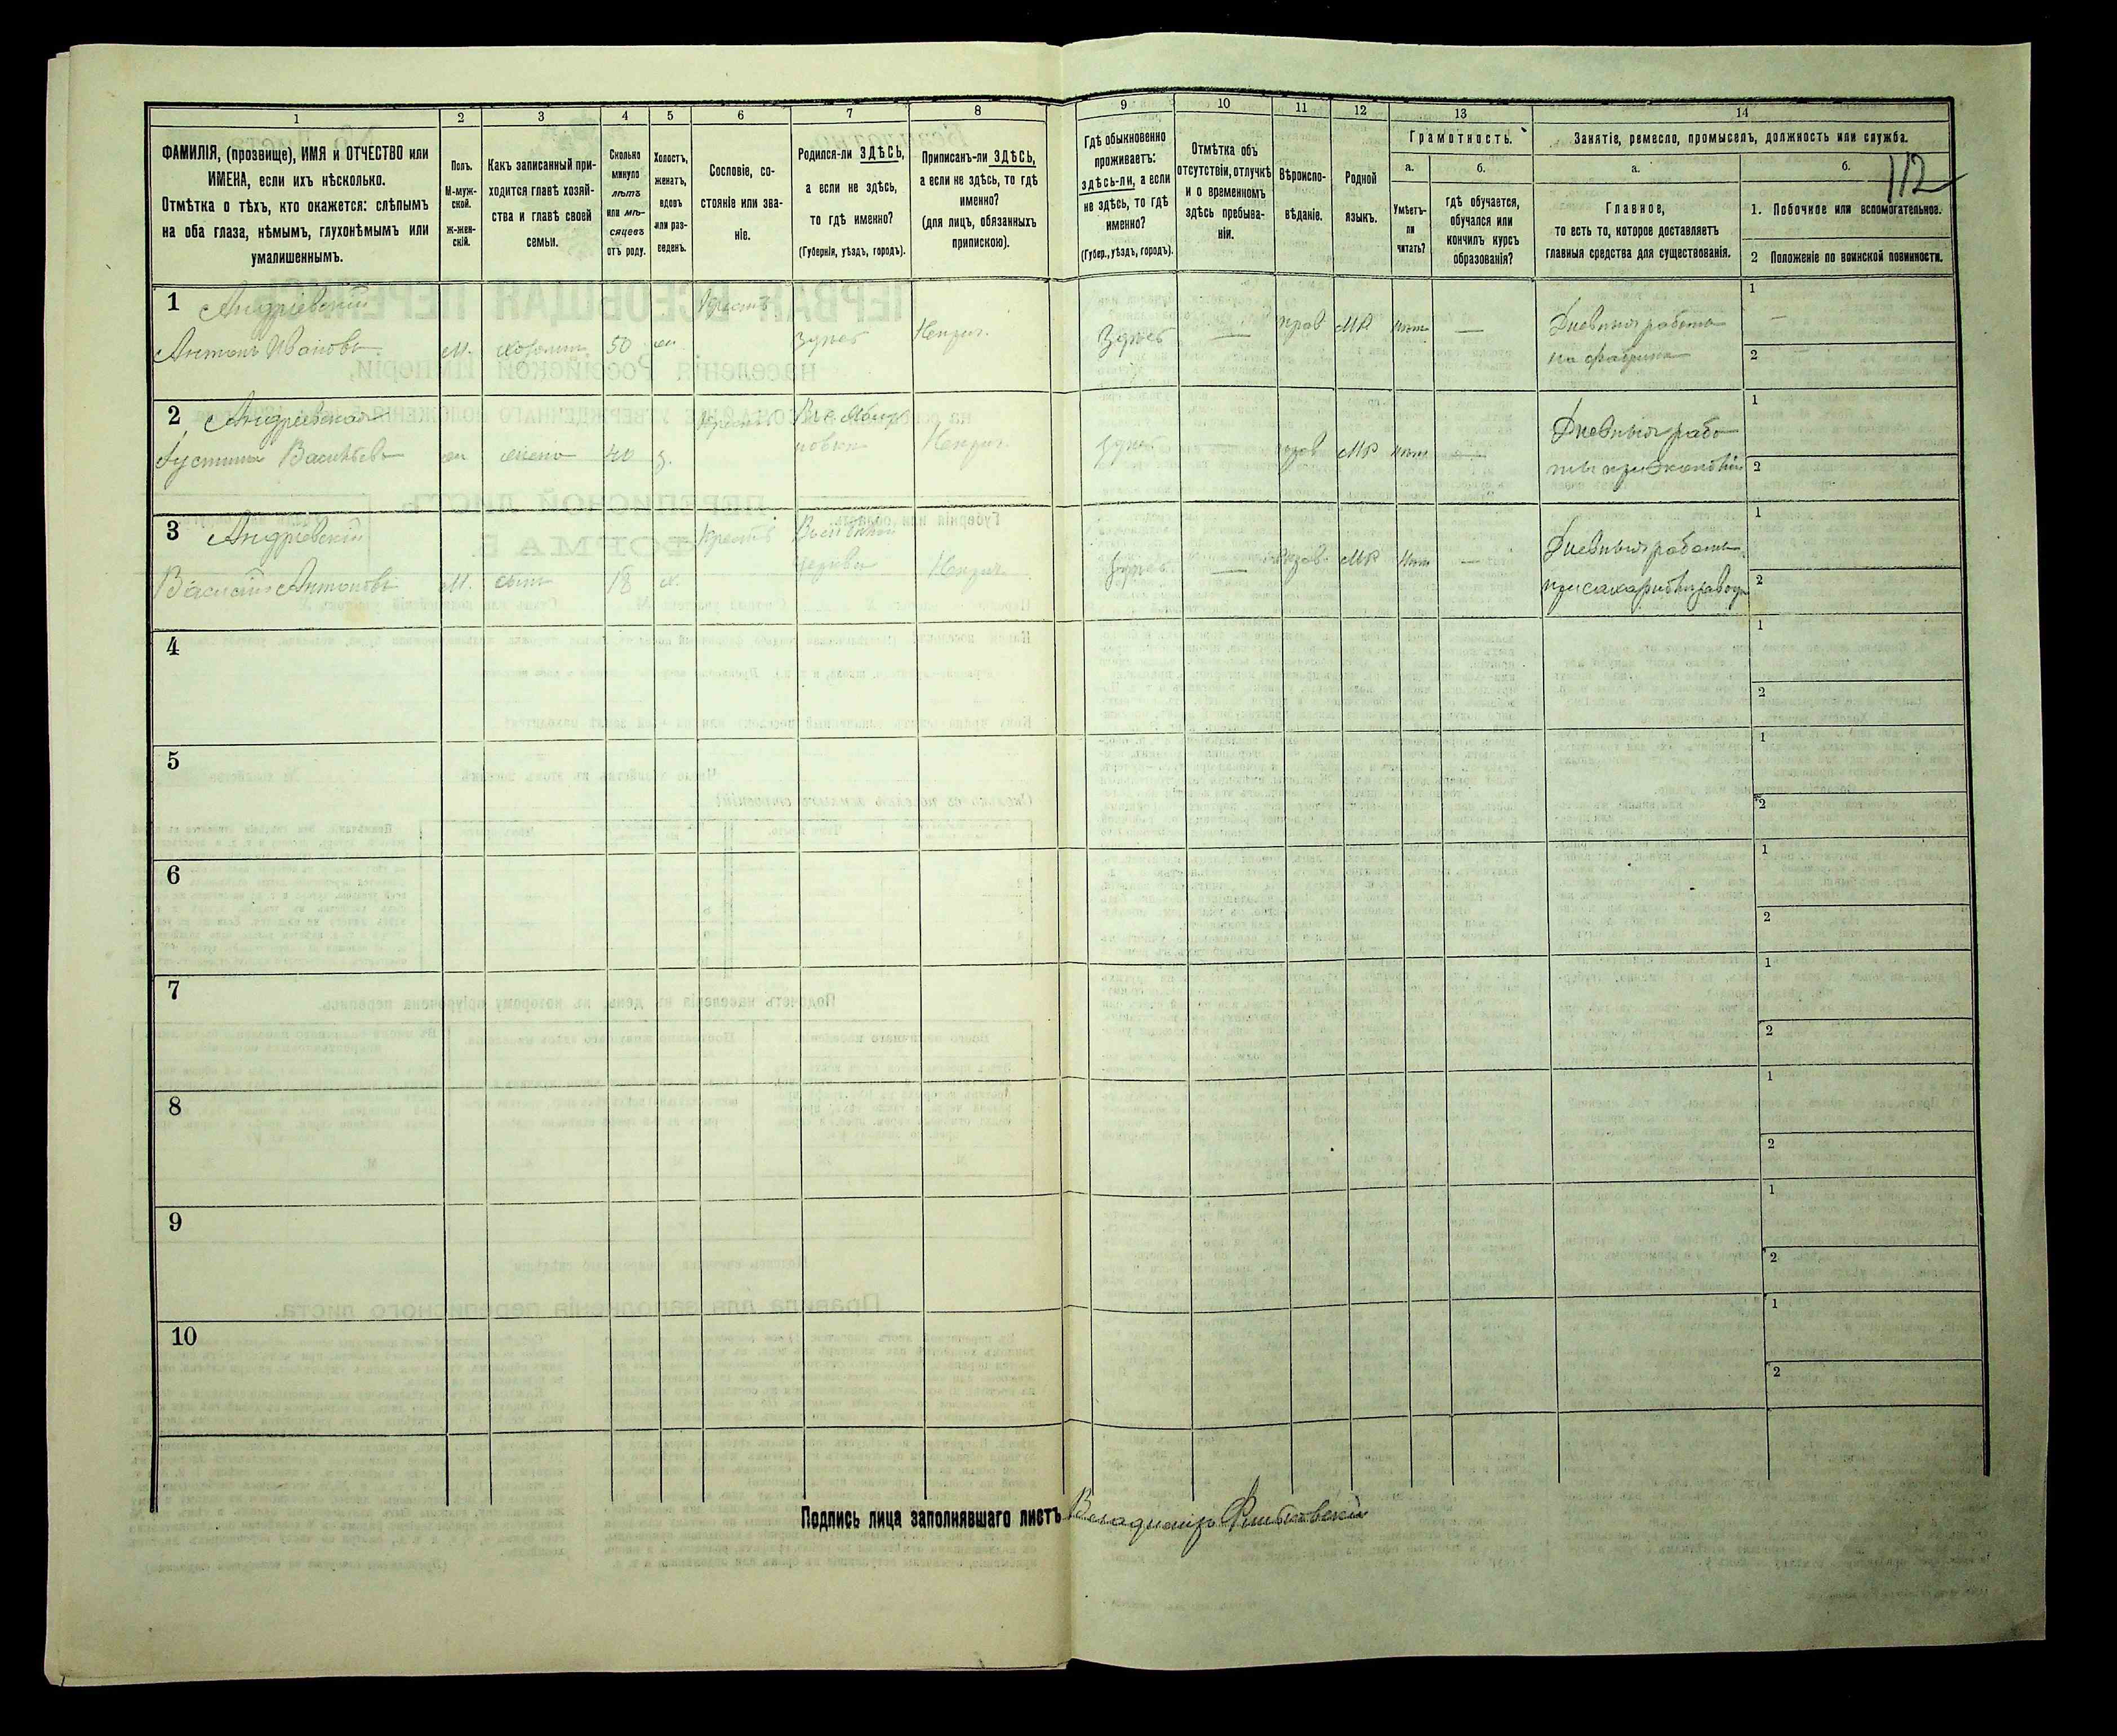 1 2 3 4 5 6 7 8 9 10 11 12 13 14
112
ФАМИЛІЯ, (прозвище), ИМЯ и ОТЧЕСТВО или
ИМЕНА, если ихъ нѣсколько.
Отмѣтка о тѣхъ, кто окажется: слѣпымъ
на оба глаза, нѣмымъ, глухонѣмымъ или
умалишеннымъ.
Полъ.
М-муж-
ской.
ж-жен-
скій.
Какъ записанный при-
ходится главѣ хозяй-
ства и главѣ своей
семьи.
Сколько
минуло
лѣтъ
или мѣ-
сяцевъ
отъ роду.
Холостъ,
женатъ,
вдовъ
или раз-
веденъ.
Сословіе, со-
стояніе или зва-
ніе.
Родился-ли ЗДѢСЬ,
а если не здѣсь,
то гдѣ именно?
(Губернія, уѣздъ, городъ).
Приписанъ-ли ЗДѢСЬ,
а если не здѣсь, то гдѣ
именно?
(для лицъ, обязанныхъ
припискою).
Гдѣ обыкновенно
проживаетъ:
здѣсь-ли, а если
не здѣсь, то гдѣ
именно?
(Губер., уѣздъ, городъ).
Отмѣтка объ
отсутствіи, отлучкѣ
и о временномъ
здѣсь пребыва-
ніи.
Вѣроиспо-
вѣданіе.
Родной
языкъ.
Грамотность.
а.
Умѣетъ-
ли
читать?
б.
гдѣ обучается,
обучался или
кончилъ курсъ
образованія?
Занятіе, ремесло, промыселъ, должность или служба.
а.
Главное,
то есть то, которое доставляетъ
главныя средства для существованія.
б.
1. Побочное или вспомогательное.
2 Положеніе по воинской повинности.
1 Андріевскій
Антонъ Ивановъ М. хозяинъ 50 жен Крестъ здѣсь здѣсь — прав МР нѣтъ —
Дневныя работы
на фабрикѣ
1 —
2 —
2 Андріевская
Васильев жена 40 з. Крест здѣсь — прав МР нѣтъ —
Дневныя рабо
ты при экономіи
1
2
3 Андріевскій
Василій Антоновъ М. сынъ 18 х. Крестъ здѣсь — прав МР нѣтъ —
Дневныя работы
при сахарномъ заводѣ
1
2
4
1
2
5
1
2
6
1
2
7
1
2
8
1
2
9
1
2
10
1
2
Подпись лица заполнявшаго листъ Владиміръ